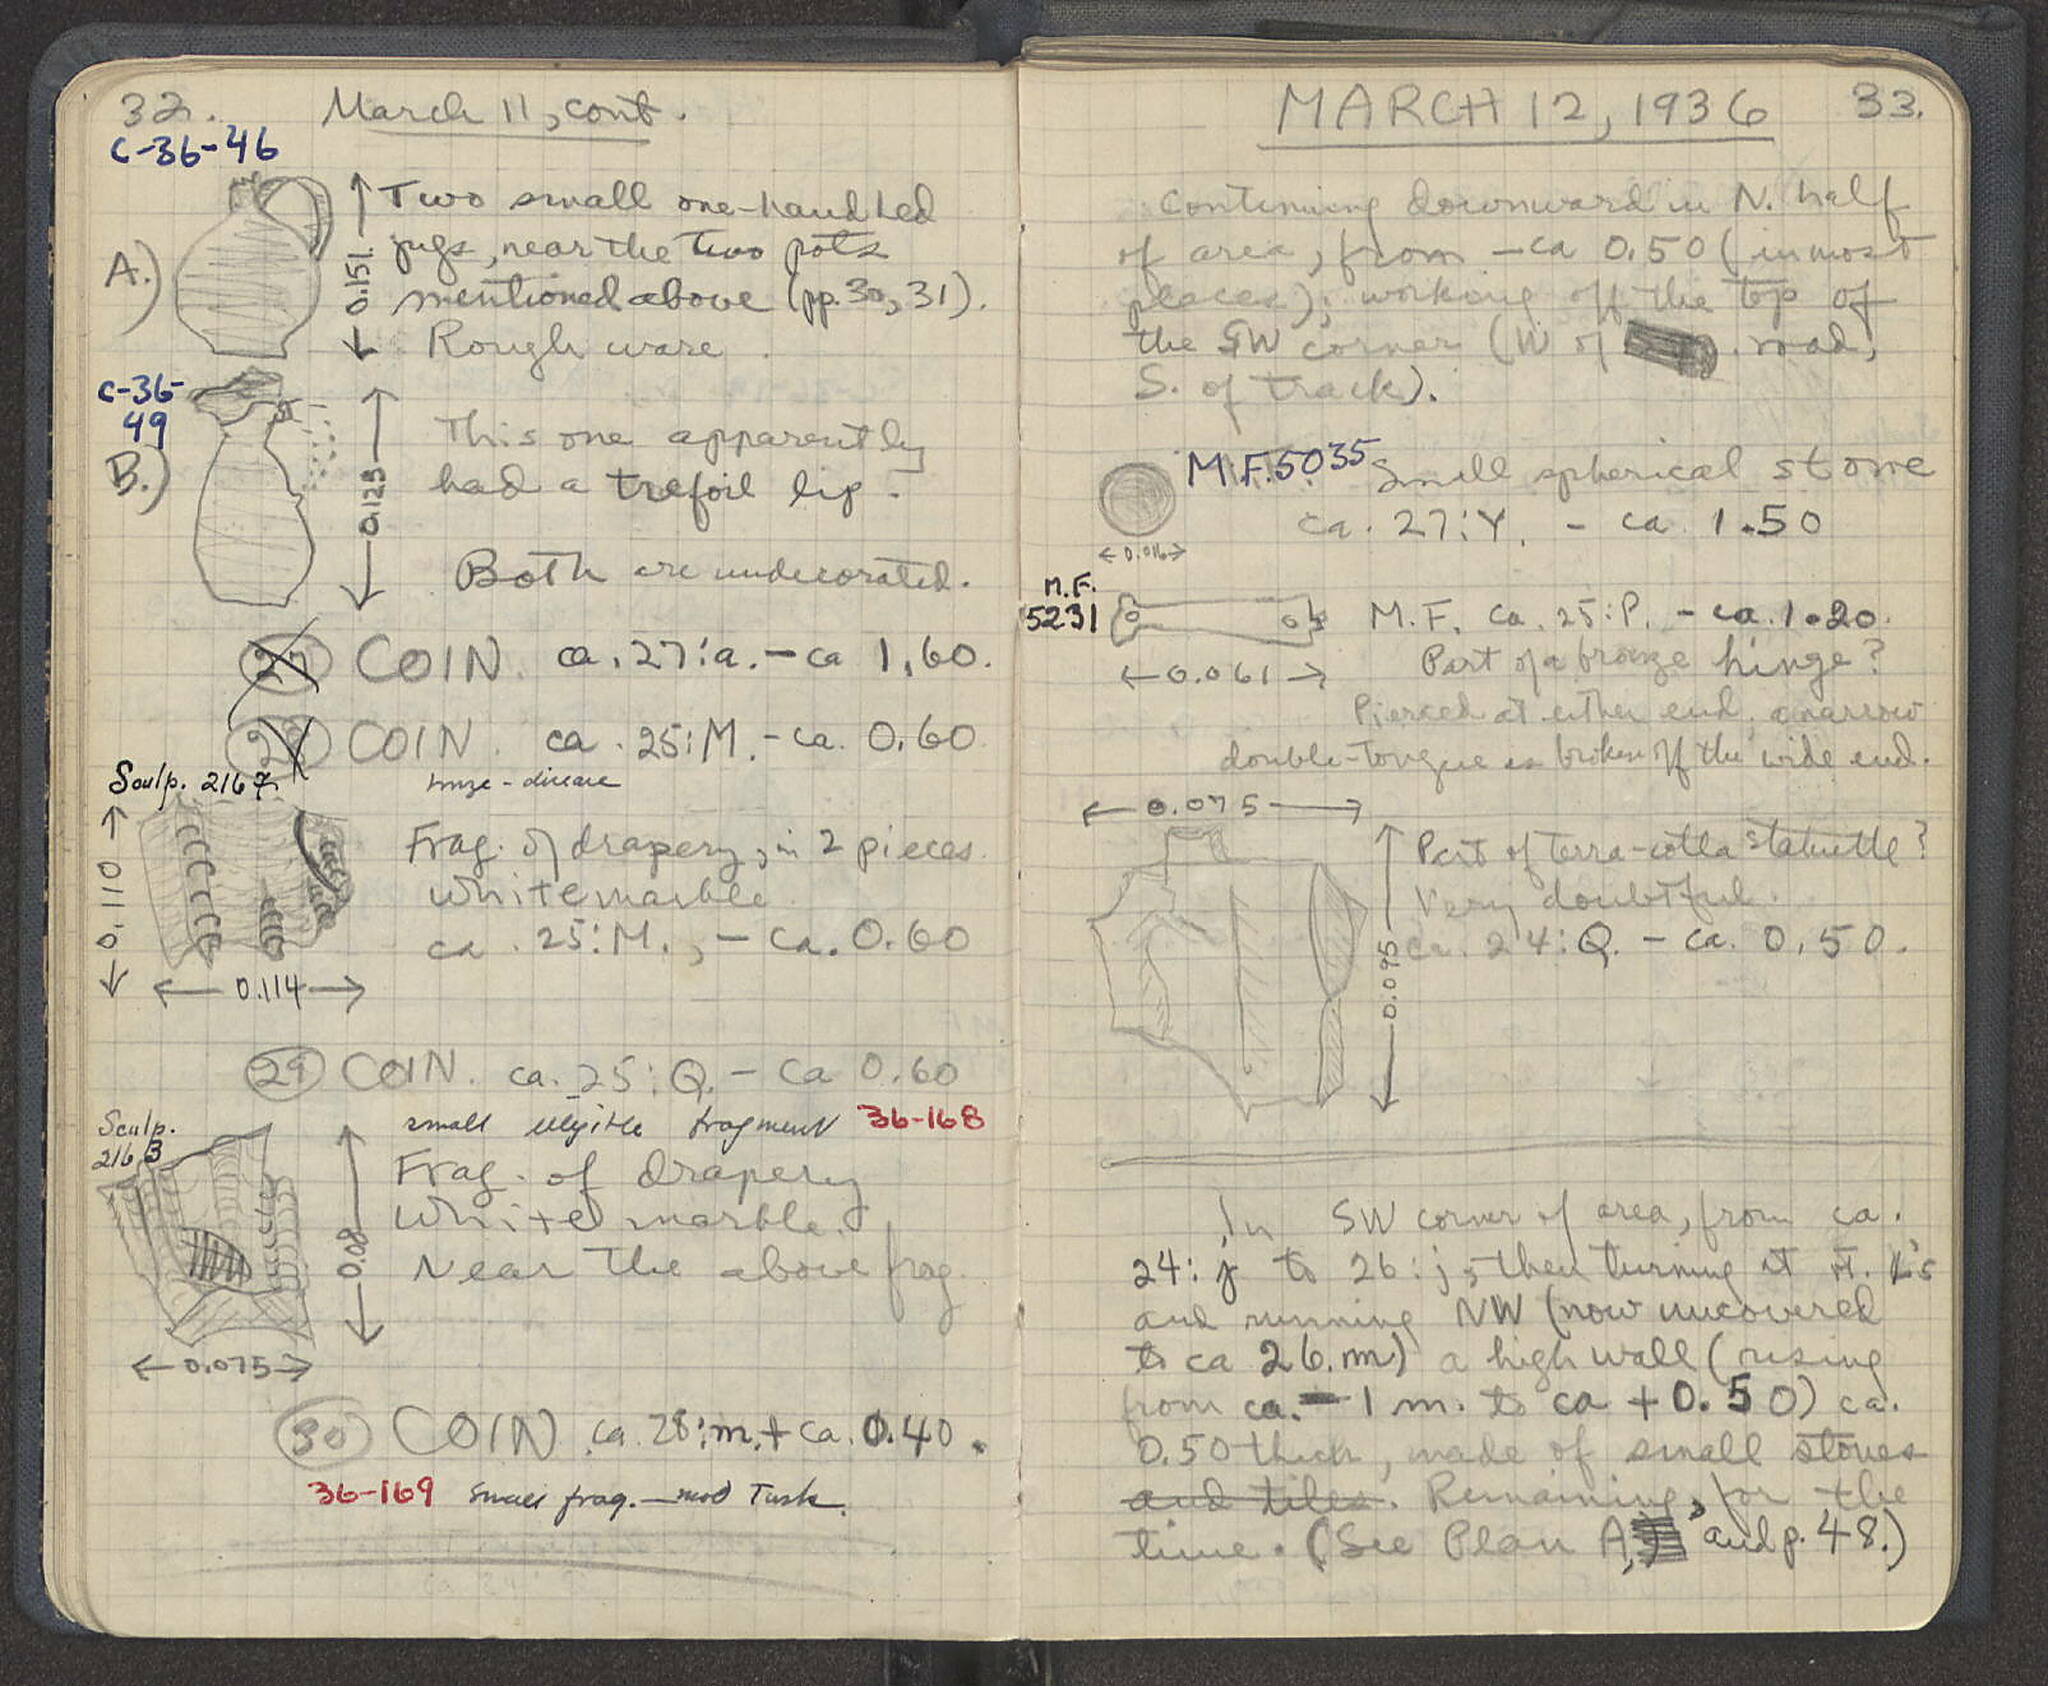 32. March 11, cont.
C-36-46
A.) 0.151 Two small one-handled
jugs, near the two pots
mentioned above (pp. 30, 31).
Rough ware.
C-36-
49
B.) 0.129 This one apparently
had a trefoil lip.
Both are undecorated.
27 COIN. ca. 27:a. - ca 1.60.
28 COIN. ca. 25:M. - ca. 0.60
bronze-disease
Sculp. 2167
0.110
Frag. of drapery, in 2 pieces.
White marble.
ca. 25:M., - ca. 0.60
0.114
29 COIN. ca. 25:Q. - ca 0.60
small illegible fragment 36-168
Sculp.
2163
0.08
Frag. of drapery
White marble.
Near the above frag.
0.075
30 COIN ca. 28:m. + ca. 0.40.
36-169 Small frag. - mod Turk.
MARCH 12, 1936 33.
Continuing downward in N. half
of area, from - ca 0.50 (in most
places); working off the top of
the SW corner (W of road,
S. of track).
M.F. 5035 Small spherical stone
ca. 27:Y. - ca 1.50
0.016
M.F.
5231
M.F. ca. 25:P. - ca. 1.20.
0.061
Part of a bronze hinge?
Pierced at either end, a narrow
double-tongue is broken off the wide end.
0.075
0.095
Part of terra-cotta statuette?
Very doubtful.
ca. 24:Q. - ca. 0.50.
In SW corner of area, from ca.
24:j to 26:j, then turning at rt. L's
and running NW (now uncovered
to ca 26.m) a high wall (rising
from ca. - 1 m. to ca + 0.50) ca.
0.50 thick, made of small stones
and tiles. Remaining, for the
time. (See Plan A, and p. 48.)